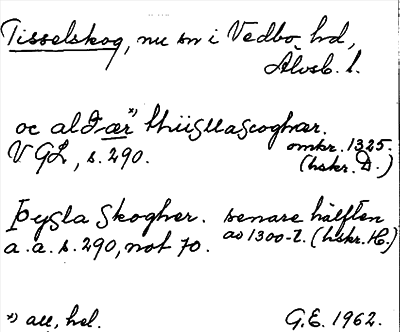 Tisselskog, nu sn i Vedbo hd,
Älvsb. l.
oc aldær *) thiisllascoghær.
VGL, s. 290.
omkr. 1325.
(hskr. D.)
Þysla skogher. senare hälften
a. a. s. 290, not 70. av 1300-t. (hskr. H.)
*) all, hel.
G.E. 1962.